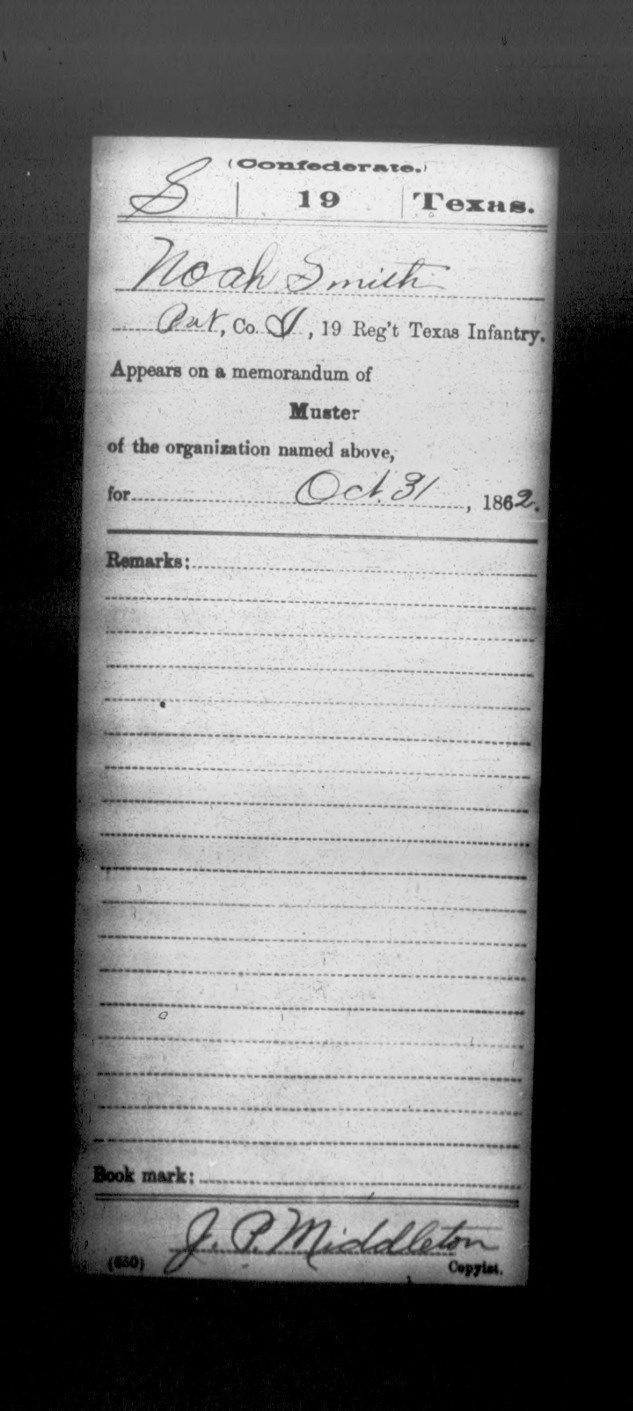 (Confederate.)
S | 19 | Texas.
Noah Smith
Pvt, Co. , 19 Reg't Texas Infantry.
Appears on a memorandum of
Muster
of the organization named above,
for Oct. 31, 1862.
Remarks:
Book mark:
J. P. Middleton
(650) Copyist.